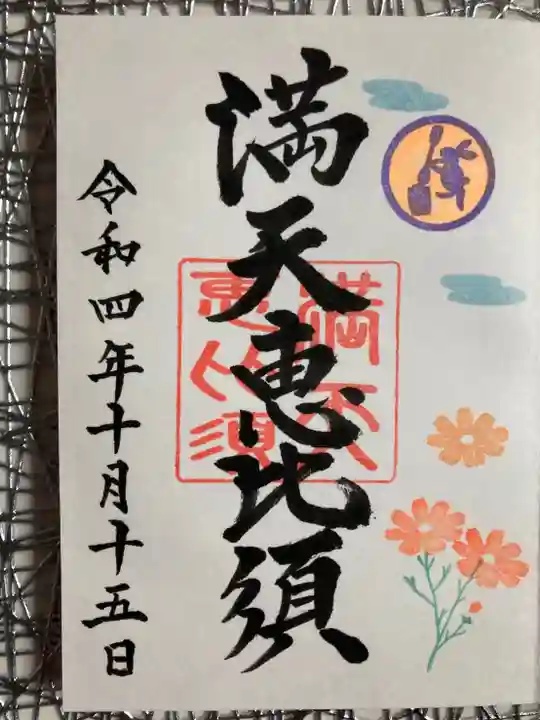 満天恵比須
満天
恵比須
令和四年十月十五日